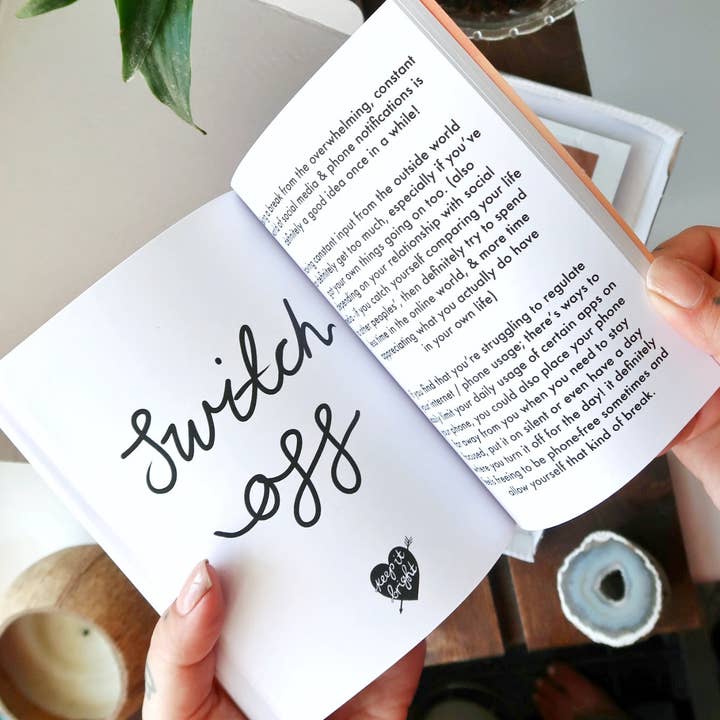 Switch
off
keep it
bright
a break from the overwhelming, constant
of social media & phone notifications is
definitely a good idea once in a while!
constant input from the outside world
definitely get too much, especially if you've
got your own things going on too. (also
depending on your relationship with social
if you catch yourself comparing your life
other peoples' then definitely try to spend
less time in the online world, & more time
appreciating what you actually do have
in your own life)
if you find that you're struggling to regulate
your internet / phone usage; there's ways to
limit your daily usage of certain apps on
your phone, you could also place your phone
far away from you when you need to stay
focused, put it on silent or even have a day
where you turn it off for the day! it definitely
freeing to be phone-free sometimes and
allow yourself that kind of break.